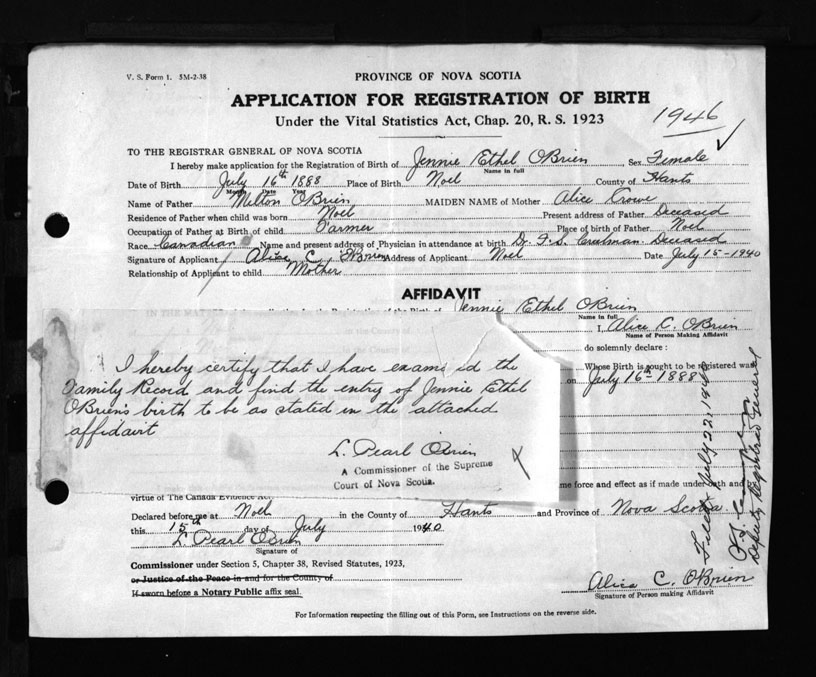 V. S. Form 1. 5M-2-38
PROVINCE OF NOVA SCOTIA
APPLICATION FOR REGISTRATION OF BIRTH
Under the Vital Statistics Act, Chap. 20, R. S. 1923
1946
TO THE REGISTRAR GENERAL OF NOVA SCOTIA
I hereby make application for the Registration of Birth of Jennie Ethel OBrien Sex Female
Name in full
Date of Birth July 16th 1888 Place of Birth Noel County of Hants
Month Date Year
Name of Father Milton OBrien MAIDEN NAME of Mother Alice Crowe
Residence of Father when child was born Noel Present address of Father Deceased
Occupation of Father at Birth of child Farmer Place of birth of Father Noel
Race Canadian Name and present address of Physician in attendance at birth Dr. F. S. Creelman Deceased
Signature of Applicant Alice C. OBrien Address of Applicant Noel Date July 15-1940
Relationship of Applicant to child Mother
AFFIDAVIT
Jennie Ethel OBrien
Name in full
I, Alice C. OBrien
Name of Person Making Affidavit
do solemnly declare :
Whose Birth is sought to be registered was
on July 16th 1888
I hereby certify that I have exam d the
Family Record and find the entry of Jennie Ethel
OBrien's birth to be as stated in the attached
affidavit
L. Pearl OBrien
A Commissioner of the Supreme
Court of Nova Scotia.
me force and effect as if made under oath and
virtue of The Canada Evidence Act.
Declared before me at Noel in the County of Hants and Province of Nova Scotia
this 15th day of July 1940
L. Pearl OBrien
Signature of
Commissioner under Section 5, Chapter 38, Revised Statutes, 1923,
or Justice of the Peace in and for the County of
If sworn before a Notary Public affix seal.
Alice C. OBrien
Signature of Person making Affidavit
For Information respecting the filling out of this Form, see Instructions on the reverse side.
Filed July 22, 1940
Deputy Registrar General